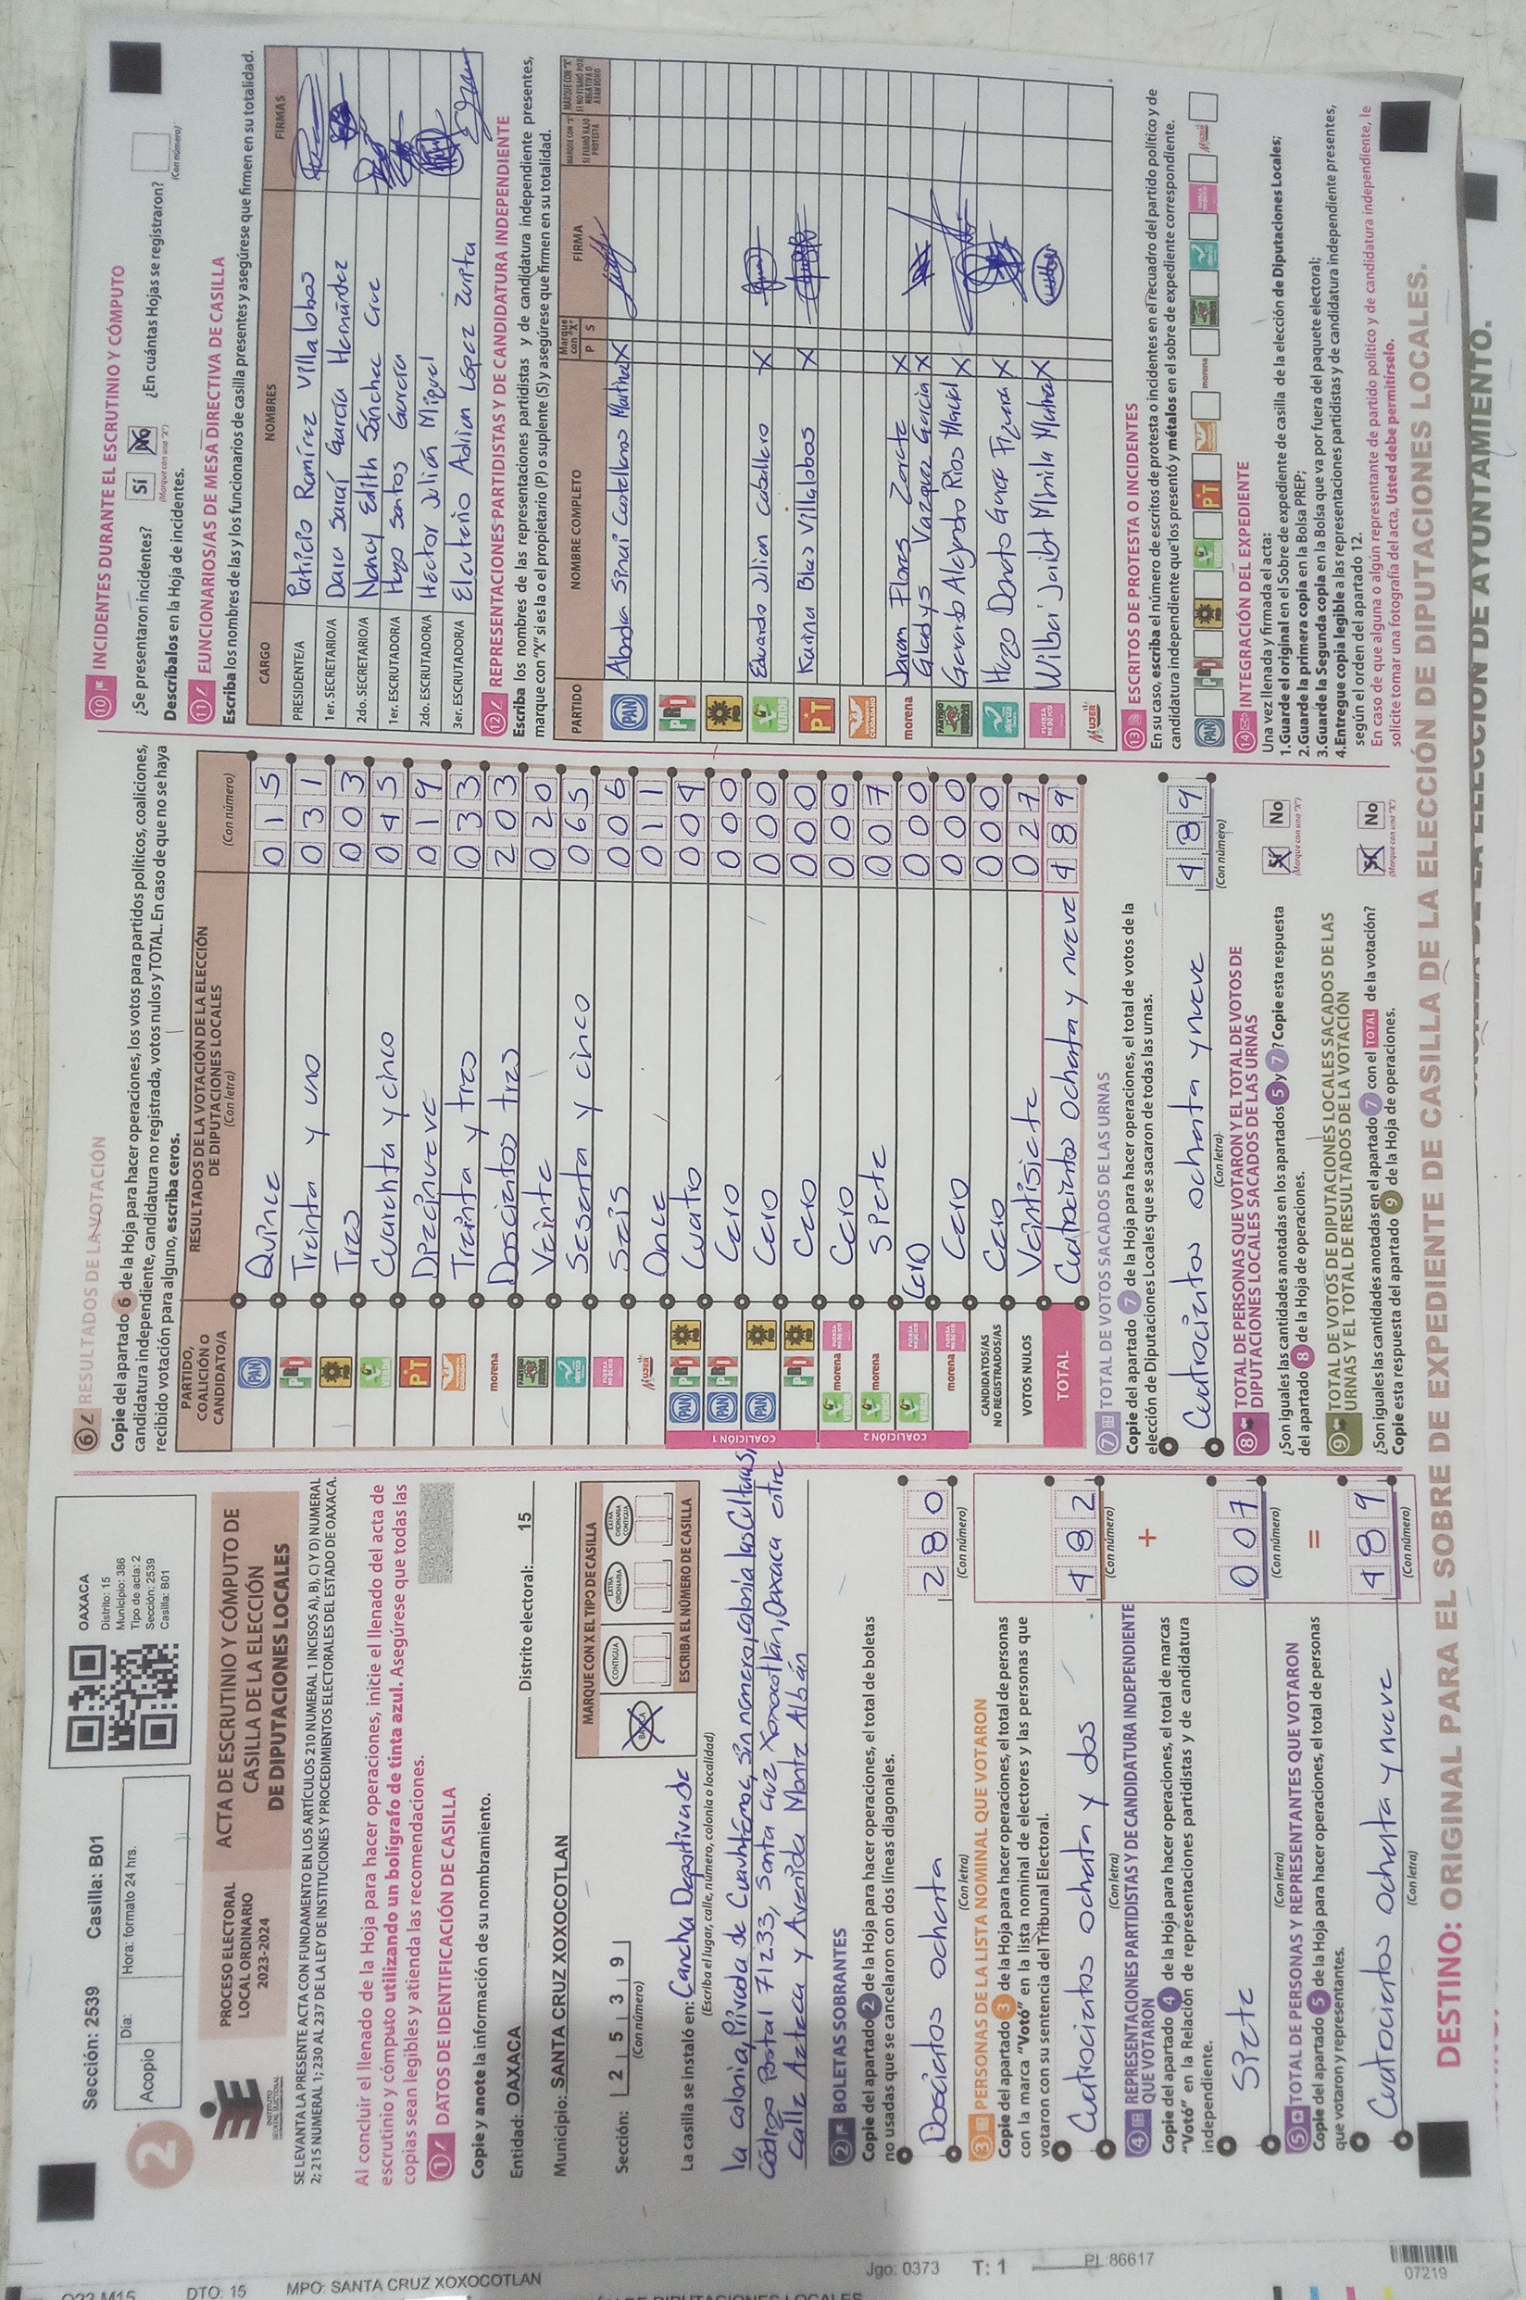 Sección: 2539 Casilla: B01
Acopio Día: Hora: formato 24 hrs.
OAXACA
Distrito: 15
Municipio: 386
Tipo de acta: 2
Sección: 2539
Casilla: B01
2
PROCESO ELECTORAL
LOCAL ORDINARIO
2023-2024
ACTA DE ESCRUTINIO Y CÓMPUTO DE
CASILLA DE LA ELECCIÓN
DE DIPUTACIONES LOCALES
SE LEVANTA LA PRESENTE ACTA CON FUNDAMENTO EN LOS ARTÍCULOS 210 NUMERAL 1 INCISOS A), B), C) Y D) NUMERAL
2; 215 NUMERAL 1; 230 AL 237 DE LA LEY DE INSTITUCIONES Y PROCEDIMIENTOS ELECTORALES DEL ESTADO DE OAXACA.
Al concluir el llenado de la Hoja para hacer operaciones, inicie el llenado del acta de
escrutinio y cómputo utilizando un bolígrafo de tinta azul. Asegúrese que todas las
copias sean legibles y atienda las recomendaciones.
1 DATOS DE IDENTIFICACIÓN DE CASILLA
Copie y anote la información de su nombramiento.
Entidad: OAXACA Distrito electoral: 15
Municipio: SANTA CRUZ XOXOCOTLAN
Sección: 2 5 3 9
(Con número)
MARQUE CON X EL TIPO DE CASILLA
CONTIGUA EXTRA ORDINARIA EXTRA ORDINARIA CONTIGUA
ESCRIBA EL NÚMERO DE CASILLA
La casilla se instaló en: Cancha Deportiva de
(Escriba el lugar, calle, número, colonia o localidad)
la colonia, Privada de Cuauhtémoc, sin número, colonia las Culturas,
Código Postal 71233, Santa Cruz Xoxocotlán, Oaxaca entre
calle Azteca y Avenida Monte Albán
2 BOLETAS SOBRANTES
Copie del apartado 2 de la Hoja para hacer operaciones, el total de boletas
no usadas que se cancelaron con dos líneas diagonales.
Doscientos ochenta 2 8 0
(Con letra) (Con número)
3 PERSONAS DE LA LISTA NOMINAL QUE VOTARON
Copie del apartado 3 de la Hoja para hacer operaciones, el total de personas
con la marca "Votó" en la lista nominal de electores y las personas que
votaron con su sentencia del Tribunal Electoral.
Cuatrocientos ochenta y dos 4 8 2
(Con letra) (Con número)
+
4 REPRESENTACIONES PARTIDISTAS Y DE CANDIDATURA INDEPENDIENTE
QUE VOTARON
Copie del apartado 4 de la Hoja para hacer operaciones, el total de marcas
"Votó" en la Relación de representaciones partidistas y de candidatura
independiente.
Siete 0 0 7
(Con letra) (Con número)
=
5 TOTAL DE PERSONAS Y REPRESENTANTES QUE VOTARON
Copie del apartado 5 de la Hoja para hacer operaciones, el total de personas
que votaron y representantes.
Cuatrocientos ochenta y nueve 4 8 9
(Con letra) (Con número)
6 RESULTADOS DE LA VOTACIÓN
Copie del apartado 6 de la Hoja para hacer operaciones, los votos para partidos políticos, coaliciones,
candidatura independiente, candidatura no registrada, votos nulos y TOTAL. En caso de que no se haya
recibido votación para alguno, escriba ceros.
PARTIDO, COALICIÓN O CANDIDATO/A
RESULTADOS DE LA VOTACIÓN DE LA ELECCIÓN DE DIPUTACIONES LOCALES (Con letra)
(Con número)
PAN Quince 0 1 5
PRI Treinta y uno 0 3 1
PRD Tres 0 0 3
VERDE Cuarenta y cinco 0 4 5
PT Diecinueve 0 1 9
Treinta y tres 0 3 3
morena Doscientos tres 2 0 3
Veinte 0 2 0
Sesenta y cinco 0 6 5
Seis 0 0 6
MUJER Once 0 1 1
COALICIÓN 1
PAN PRI PRD Cuatro 0 0 4
PAN PRI Cero 0 0 0
PAN PRD Cero 0 0 0
PRI PRD Cero 0 0 0
COALICIÓN 2
VERDE morena FUERZA MÉXICO Cero 0 0 0
VERDE morena Siete 0 0 7
VERDE FUERZA MÉXICO Cero 0 0 0
morena FUERZA MÉXICO Cero 0 0 0
CANDIDATOS/AS NO REGISTRADOS/AS Cero 0 0 0
VOTOS NULOS Veintisiete 0 2 7
TOTAL Cuatrocientos ochenta y nueve 4 8 9
7 TOTAL DE VOTOS SACADOS DE LAS URNAS
Copie del apartado 7 de la Hoja para hacer operaciones, el total de votos de la
elección de Diputaciones Locales que se sacaron de todas las urnas.
Cuatrocientos ochenta y nueve 4 8 9
(Con letra) (Con número)
8 TOTAL DE PERSONAS QUE VOTARON Y EL TOTAL DE VOTOS DE
DIPUTACIONES LOCALES SACADOS DE LAS URNAS
¿Son iguales las cantidades anotadas en los apartados 5 y 7? Copie esta respuesta
del apartado 8 de la Hoja de operaciones.
Sí No
(Marque con una "X")
9 TOTAL DE VOTOS DE DIPUTACIONES LOCALES SACADOS DE LAS
URNAS Y EL TOTAL DE RESULTADOS DE LA VOTACIÓN
¿Son iguales las cantidades anotadas en el apartado 7 con el TOTAL de la votación?
Copie esta respuesta del apartado 9 de la Hoja de operaciones.
Sí No
(Marque con una "X")
10 INCIDENTES DURANTE EL ESCRUTINIO Y CÓMPUTO
¿Se presentaron incidentes? Sí No ¿En cuántas Hojas se registraron?
(Marque con una "X") (Con número)
Descríbalos en la Hoja de incidentes.
11 FUNCIONARIOS/AS DE MESA DIRECTIVA DE CASILLA
Escriba los nombres de las y los funcionarios de casilla presentes y asegúrese que firmen en su totalidad.
CARGO NOMBRES FIRMAS
PRESIDENTE/A Patricio Ramírez Villalobos
1er. SECRETARIO/A Dara Saraí García Hernández
2do. SECRETARIO/A Nancy Edith Sánchez Cruz
1er. ESCRUTADOR/A Hugo Santos García
2do. ESCRUTADOR/A Héctor Julián Miguel
3er. ESCRUTADOR/A Eleuterio Adrian López Zurita
12 REPRESENTACIONES PARTIDISTAS Y DE CANDIDATURA INDEPENDIENTE
Escriba los nombres de las representaciones partidistas y de candidatura independiente presentes,
marque con "X" si es la o el propietario (P) o suplente (S) y asegúrese que firmen en su totalidad.
PARTIDO NOMBRE COMPLETO Marque con "X" P S FIRMA
PAN Sinai Castellanos X
PRI
PRD
VERDE Eduardo Julian Caballero X
PT Karina Blas Villalobos X
Flores Zarate X
morena Gladys Vazquez Garcia X
Gerardo Alejandro Rios X
Hugo Donato X
X
MUJER
13 ESCRITOS DE PROTESTA O INCIDENTES
En su caso, escriba el número de escritos de protesta o incidentes en el recuadro del partido político y de
candidatura independiente que los presentó y métalos en el sobre de expediente correspondiente.
14 INTEGRACIÓN DEL EXPEDIENTE
Una vez llenada y firmada el acta:
1.Guarde el original en el Sobre de expediente de casilla de la elección de Diputaciones Locales;
2.Guarde la primera copia en la Bolsa PREP;
3.Guarde la Segunda copia en la Bolsa que va por fuera del paquete electoral;
4.Entregue copia legible a las representaciones partidistas y de candidatura independiente presentes,
según el orden del apartado 12.
En caso de que alguna o algún representante de partido político y de candidatura independiente, le
solicite tomar una fotografía del acta, Usted debe permitírselo.
DESTINO: ORIGINAL PARA EL SOBRE DE EXPEDIENTE DE CASILLA DE LA ELECCIÓN DE DIPUTACIONES LOCALES.
DE LA ELECCIÓN DE AYUNTAMIENTO.
DTO: 15 MPO: SANTA CRUZ XOXOCOTLAN
Jgo: 0373 T: 1 PI: 86617
07219